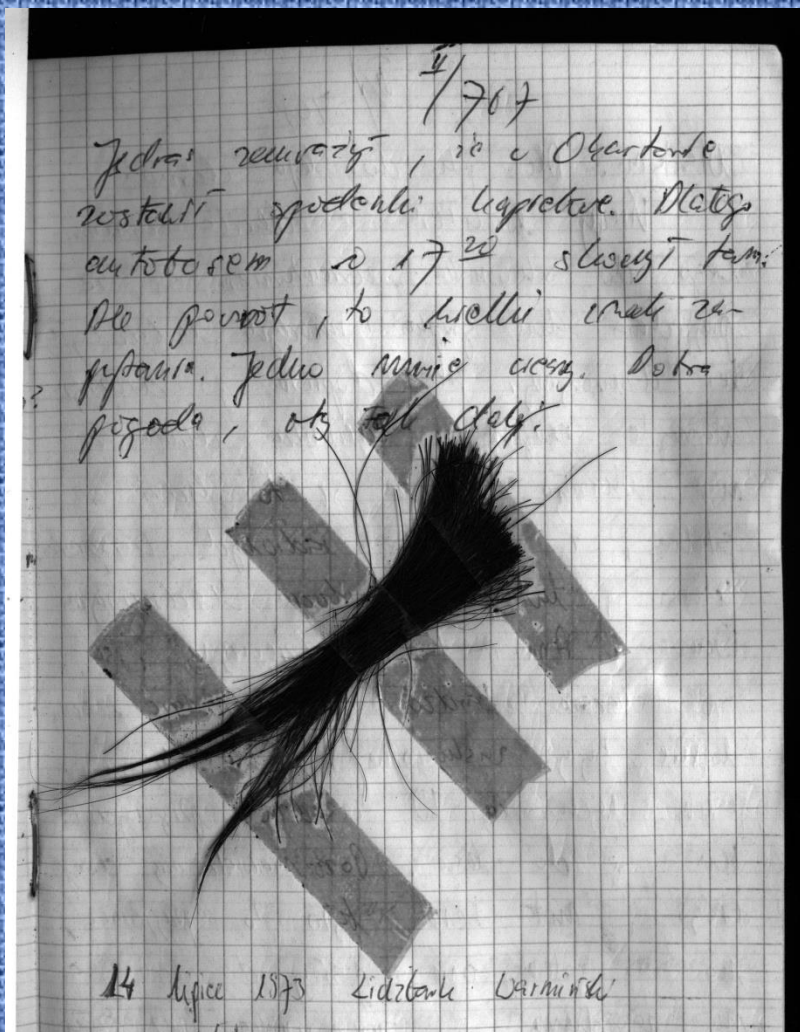 II/767
Jędruś zauważył, że w Okartowie
zostawił spodenki kąpielowe. Dlatego
autobusem o 17 20 skoczył tam.
Ale powrót, to wielki znak za-
pytania. Jedno mnie cieszy. Dobra
pogoda, oby tak dalej.
14 lipiec 1973 Lidzbark Warmiński